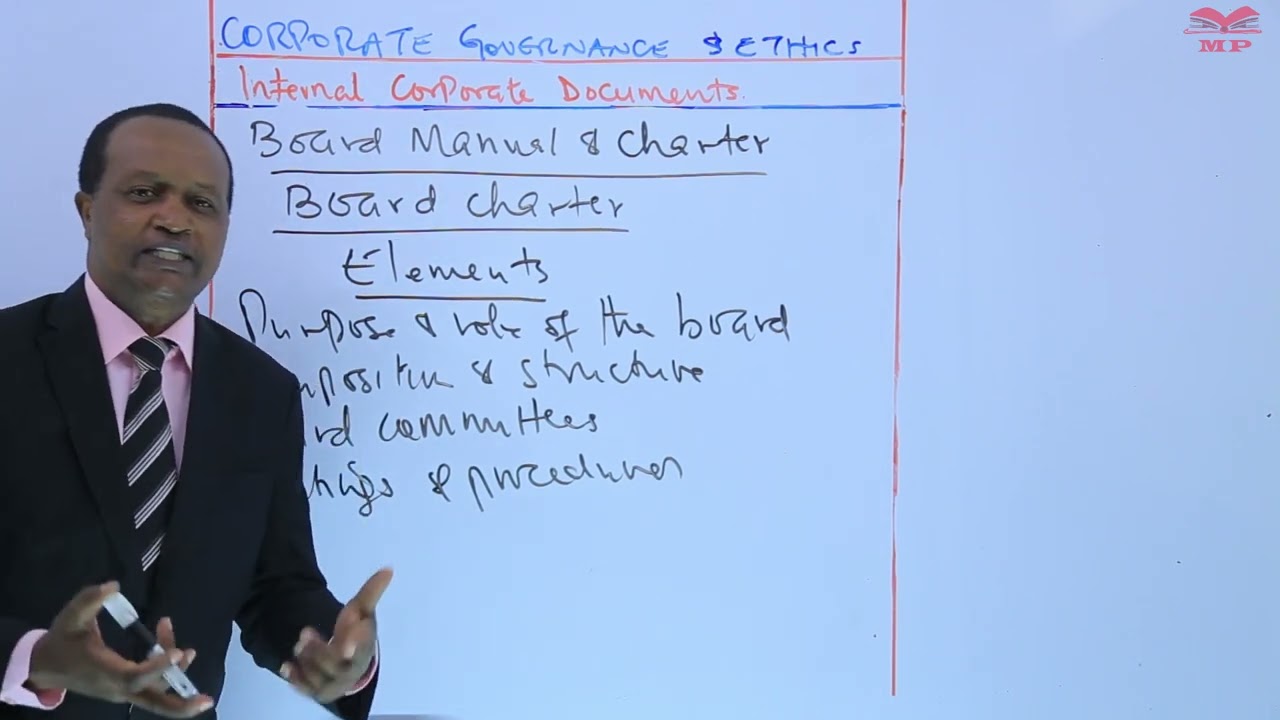 CORPORATE GOVERNANCE & ETHICS
MP
Internal Corporate Documents.
Board Manual & Charter
Board charter
Elements
Purpose & role of the board
& structure
committees
& procedures